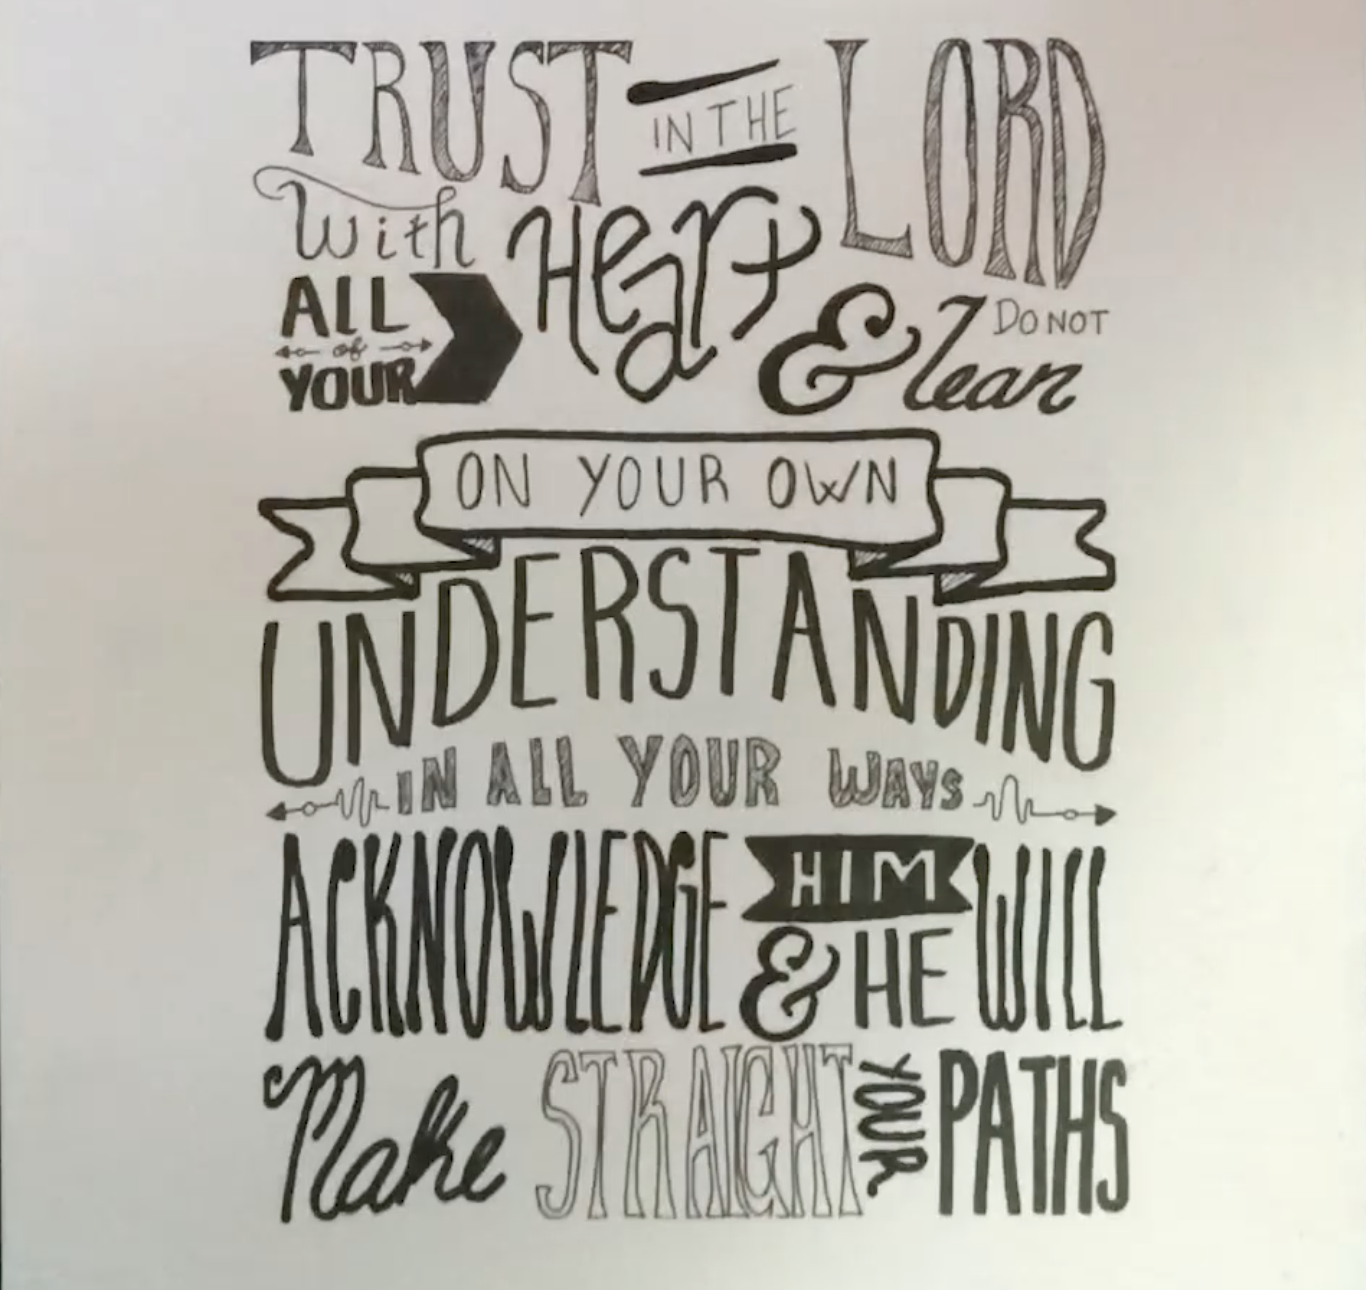 TRUST IN THE LORD
With ALL of YOUR Heart & DO NOT lean
ON YOUR OWN
UNDERSTANDING
IN ALL YOUR WAYS
ACKNOWLEDGE HIM & HE WILL
Make STRAIGHT YOUR PATHS